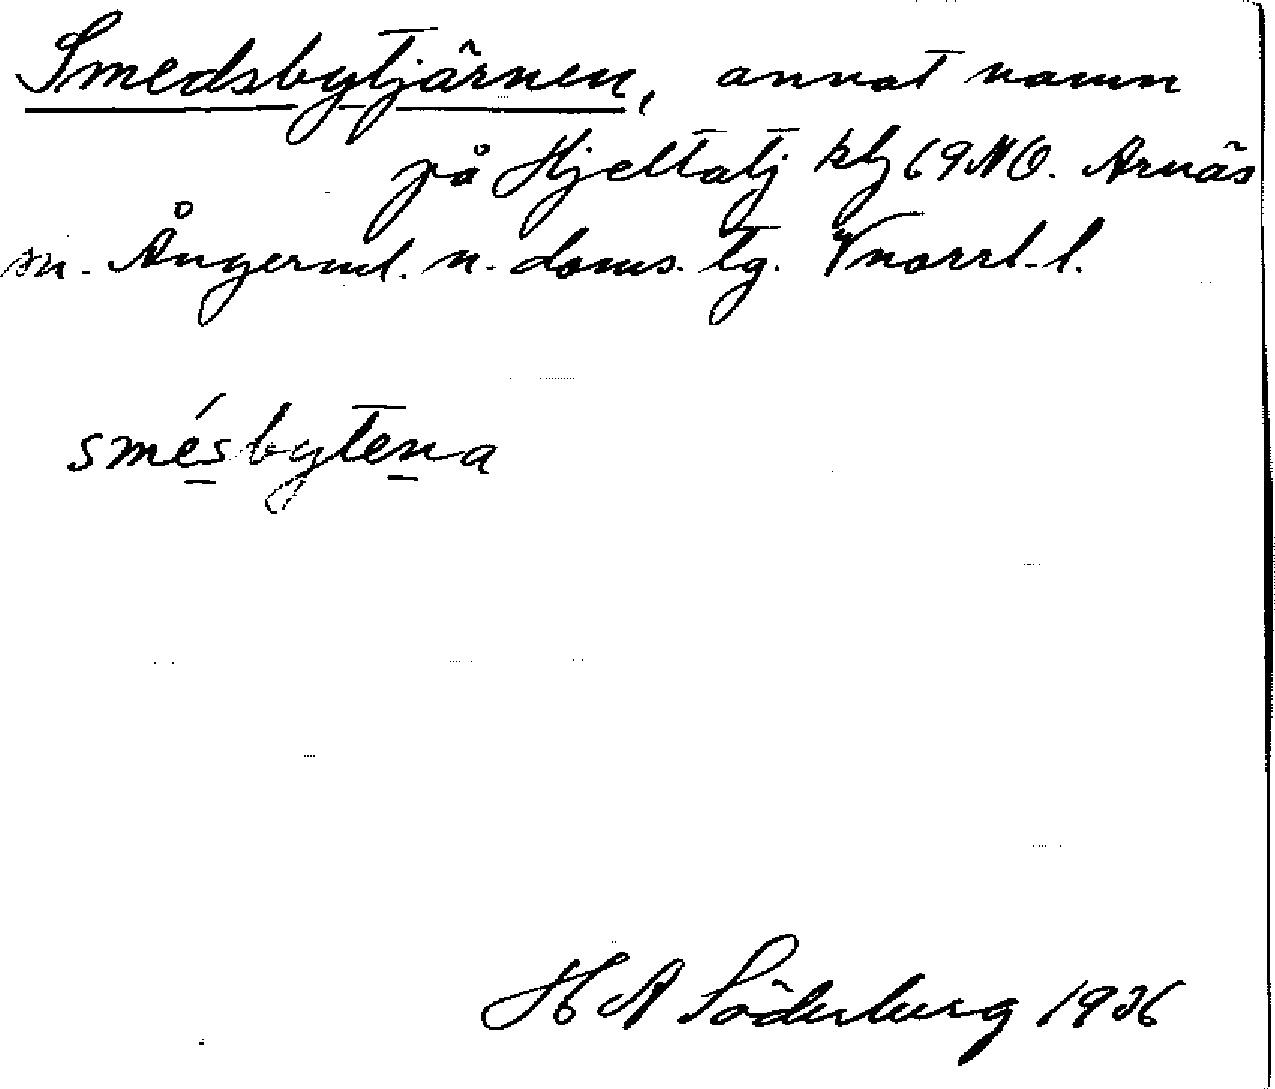 Smedsbytjärnen, annat namn
på Hjeltatj kbl 69 NO. Arnäs
sn. Ångerml. n. doms. tg. Vnorrl. l.
smésbytena
H A Söderberg 1936